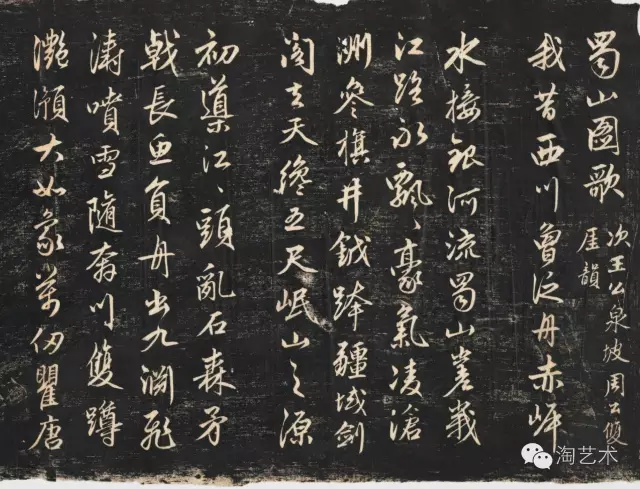 蜀山圖歌
次王公泉坡周公雙
厓韻
我昔西川曾泛舟赤岸
水接銀河流蜀山嵳峩
江路永飄〻豪氣凌滄
洲參旗井鉞疆域劍
閣去天纔五尺岷山之源
初導江〻頭亂石森矛
戟長魚負舟出九淵飛
濤噴雪隨奔川雙蹲
灩澦大如象萬仞瞿唐
淘艺术